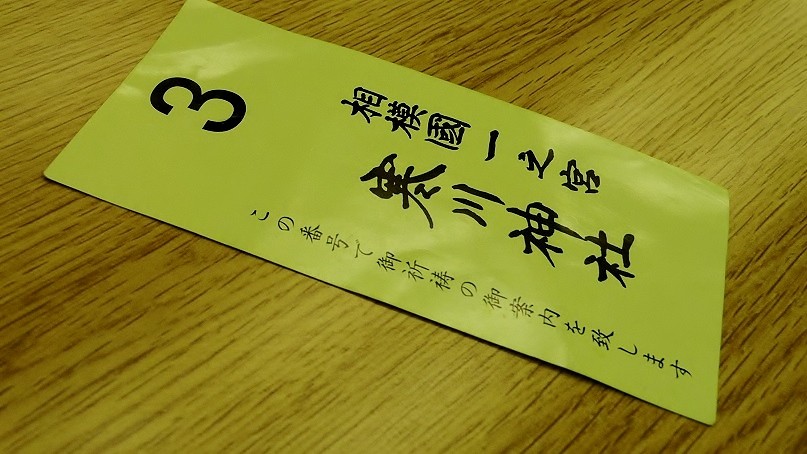 3
相模國一之宮
寒川神社
この番号で御祈祷の御案内を致します